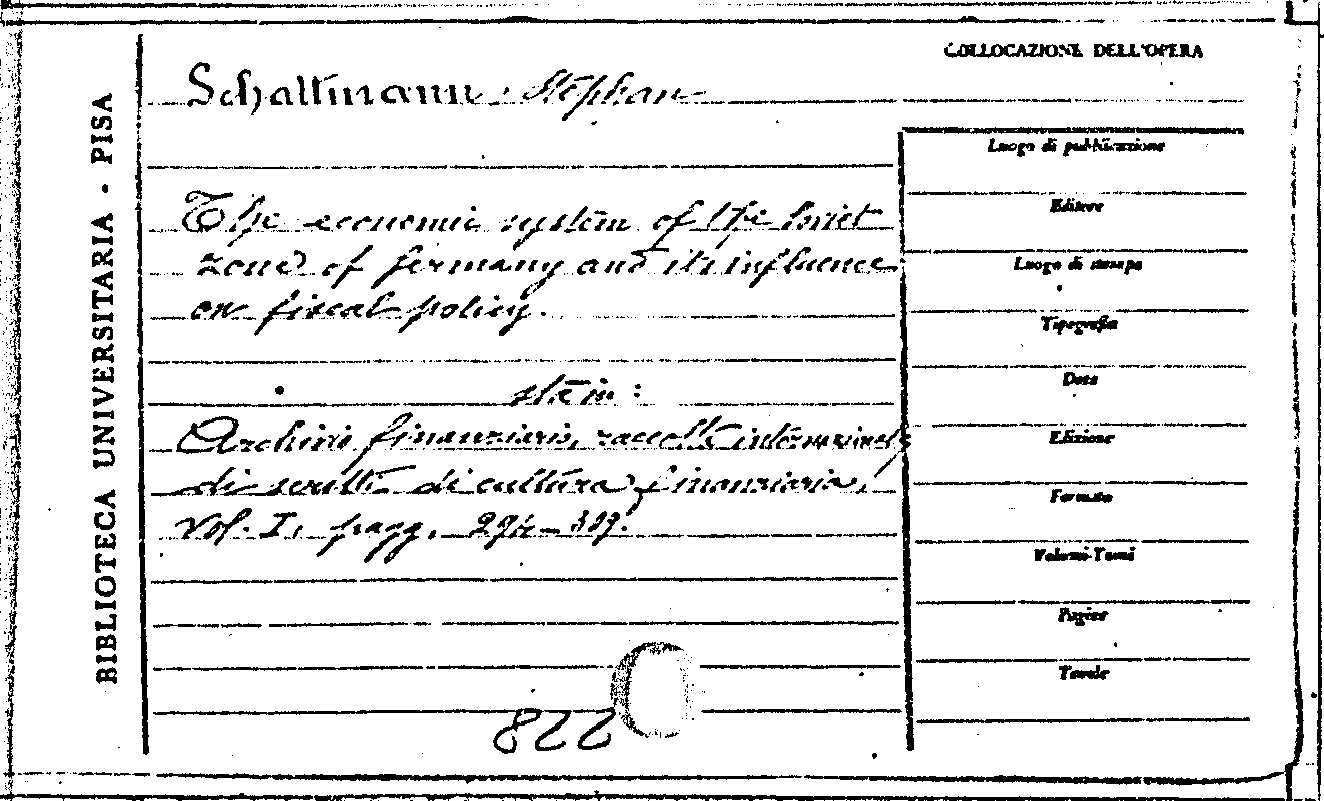 COLLOCAZIONE DELL'OPERA
BIBLIOTECA UNIVERSITARIA - PISA
Schattmann Stephan
The economic system of the Soviet
zone of Germany and its influence
on fiscal policy.
sta in:
Archivio finanziario, raccolta internazionale
di scritti di cultura finanziaria,
Vol. I, pagg. 294-309.
822
Luogo di pubblicazione
Editore
Luogo di stampa
Tipografia
Data
Edizione
Formato
Volumi-Tomi
Pagine
Tavole